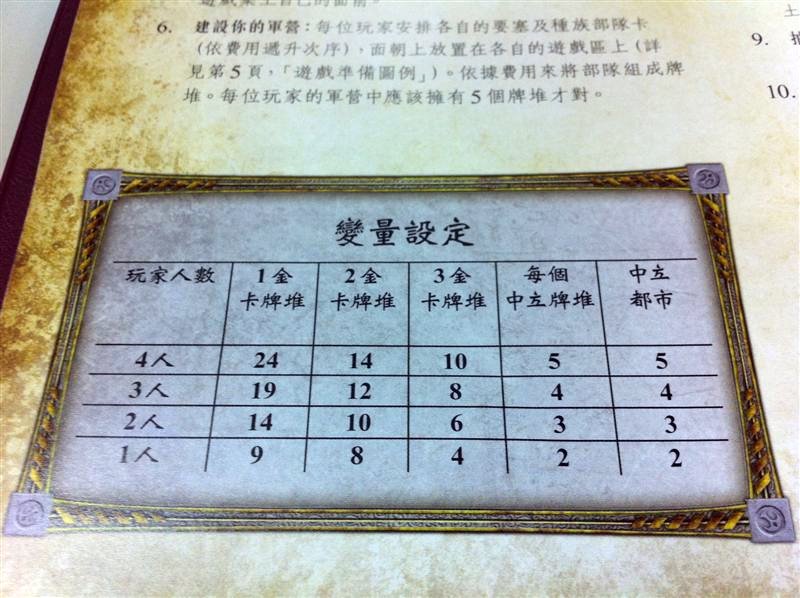 遊戲桌上自己的面前。
6. 建設你的軍營：每位玩家安排各自的要塞及種族部隊卡
（依費用遞升次序），面朝上放置在各自的遊戲區上（詳
見第5頁，「遊戲準備圖例」）。依據費用來將部隊組成牌
堆。每位玩家的軍營中應該擁有5個牌堆才對。
土
9.
10.
變量設定
玩家人數 1金 2金 3金 每個 中立
卡牌堆 卡牌堆 卡牌堆 中立牌堆 都市
4人 24 14 10 5 5
3人 19 12 8 4 4
2人 14 10 6 3 3
1人 9 8 4 2 2